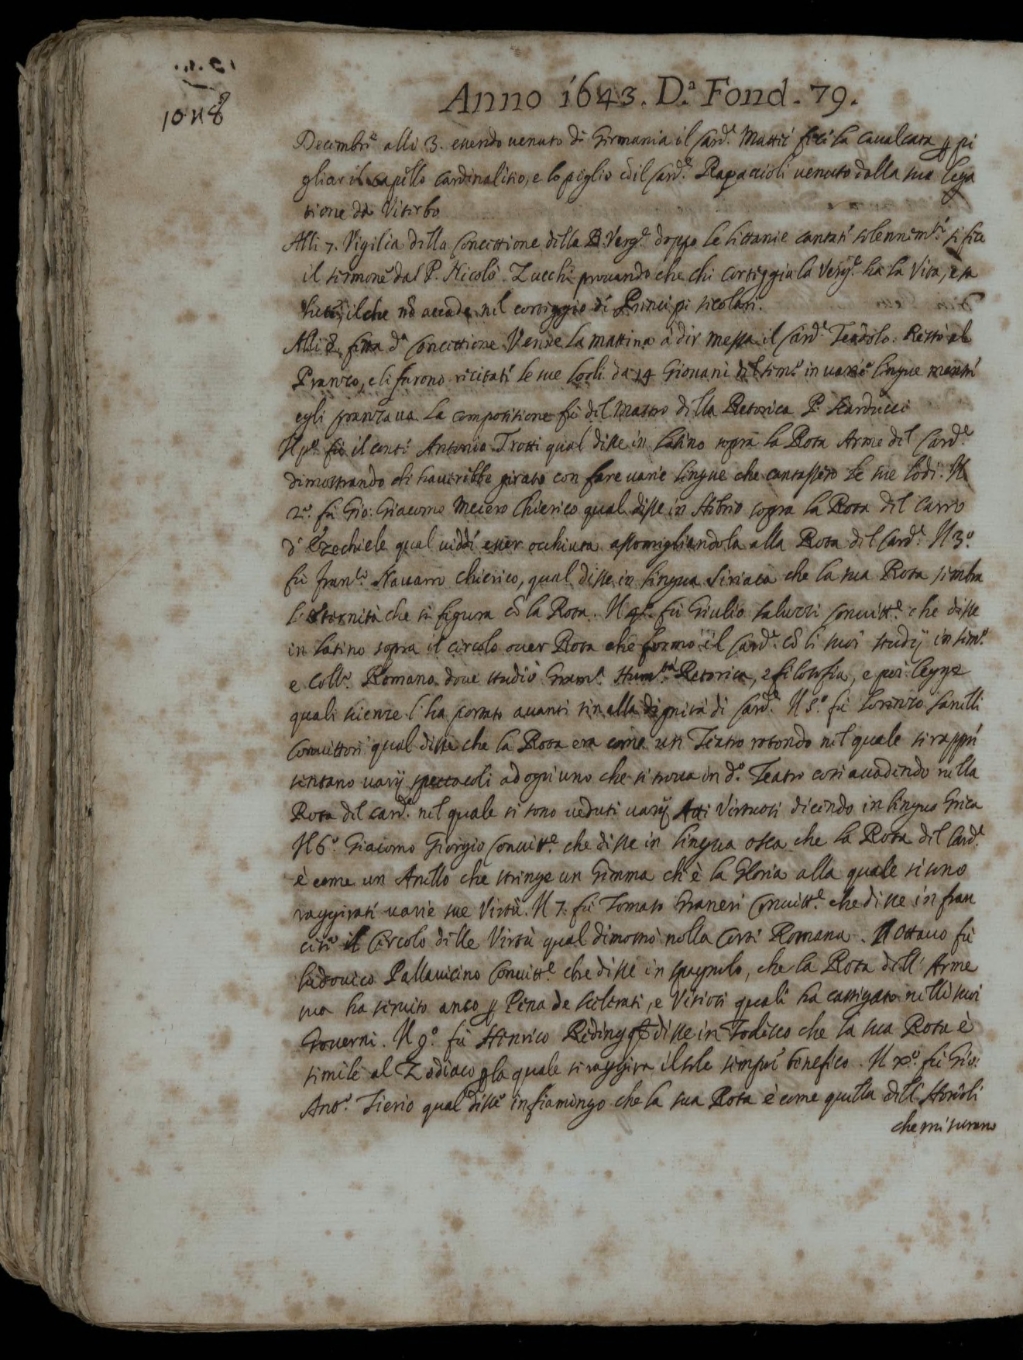 1048
Anno 1643. D.ª Fond. 79.
Decembre alli 3. essendo venuto di Germania il Card.e Mattei fece la cavalcata p pi
gliar il capello Cardinalitio, e lo piglio cō il Card.e Rapaccioli venuto dalla sua lega
tione da Viterbo
Alli 7. Vigilia della Concettione della B. Verg.e doppo le littanie cantate solennim.te si fece
il sermone dal P. Nicolò Zucchi provando che chi corteggia la Verg.e ha la Vita, e sa
lute, il che nō accade nel corteggio di Principi secolari.
Alli 8. festa d.ª Concettione Venne la mattina a dir messa il Card.e Teodolo. Restò al
Pranzo, e li furono recitate le sue Lodi da 14 Giovani del sem.o in varie lingue mentre
egli pranzava La compositione fù del Mastro della Retorica P. Carducci
Il p.o fù il conte Antonio Trotti qual disse in Latino sopra la Rota Arme del Card.e
dimostrando ch haverebbe girato con fare varie lingue che cantassero le sue lodi. Il
2.o fù Gio: Giacomo Meiero Chierico qual disse in Hebreo sopra la Rota del Carro
d'Ezechiele qual viddi esser occhiuta assomigliandola alla Rota del Card.e Il 3.o
fù Fran.co Navarro Chierico, qual disse in lingua Siriaca che la sua Rota simbra
l'Eternità che si figura cō la Rota. Il 4.o fù Giulio Saluzzi Convitt.e che disse
in latino sopra il circolo over Rota che formò il Card.e cō li suoi studij in sem.o
e Coll.o Romano dove studiò Gram.a Hum.tà Retorica, e filosofia, e poi legge
quali scienze l'ha portato avanti sin alla dignità di Card.e Il 5.o fù Lorenzo
Convittore qual disse che la Rota era come un Teatro rotondo nel quale si rappre
sentano varij spettacoli ad ogni uno che si trova in d.o Teatro così accadendo nella
Rota del Card.e nel quale si sono veduti varij Atti Virtuosi dicendo in lingua Greca
Il 6.o Giacomo Giorgio Convitt.e che disse in lingua osca che la Rota del Card.e
è come un Anello che stringe un Gemma ch'è la Gloria alla quale si sono
raggirati varie sue Virtù. Il 7. fù Tomaso Graneri Convitt.e che disse in fran
cese il Circolo delle Virtù qual dimostrò nella Corte Romana. Il Ottavo fù
Ludovico Pallavicino Convitt.e che disse in spagnolo, che la Rota dell'Arme
sua ha servito anco p Pena de scelerati, e Vitiosi quali ha castigato nelli suoi
Governi. Il 9.o fù Henrico disse in Todesco che la sua Rota è
simile al Zodiaco p la quale si raggira il sole sempre benefico. Il X.o fù Gio:
Ant.o Tierio qual disse in fiamingo che la sua Rota è come quella delli Horioli
che misurano